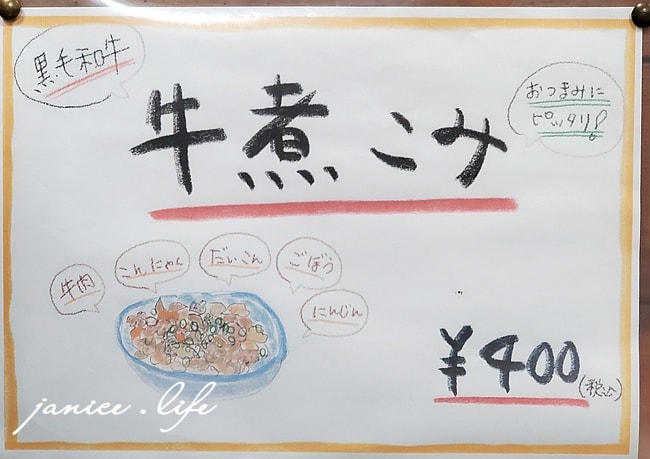 黒毛和牛
牛煮こみ
おつまみに
ピッタリ!
牛肉
こんにゃく
だいこん
ごぼう
にんじん
¥400
(税込)
janice.life